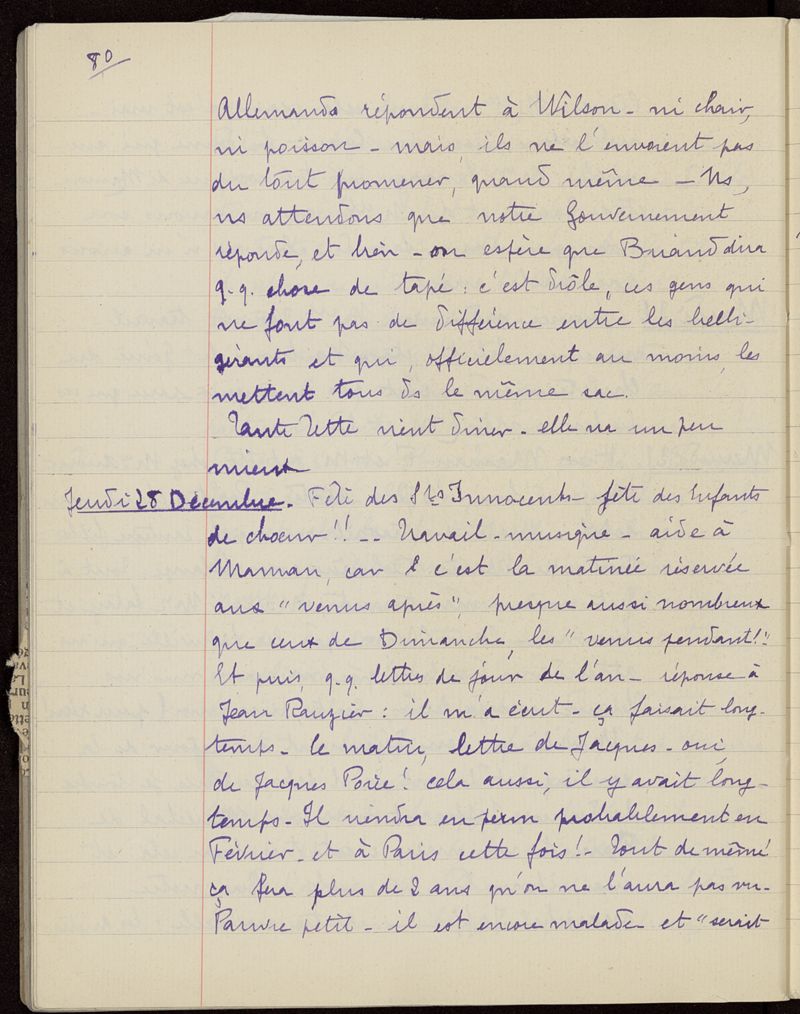 80
Allemands répondent à Wilson - ni chair,
ni poisson - mais, ils ne l'envoient pas
du tout promener, quand même - Ns,
ns attendons que notre Gouvernement
réponde, et bien - on espère que Briand dira
q.q. chose de tapé : c'est drôle, ces gens qui
ne font pas de différence entre les belli-
gérants et qui, officielement au moins, les
mettent tous ds le même sac.
Tante Tette vient dîner - elle va un peu
mieux
Jeudi 28 Décembre. Fête des Sts Innocents - fête des Enfants
de chœur !! -- Travail - musique - aide à
Maman, car c'est la matinée réservée
aux "venus après", presque aussi nombreux
que ceux de Dimanche, les "venus pendant!"
Et puis, q.q. lettres de jour de l'an - réponse à
Jean Rauzier : il m'a écrit - ça faisait long-
temps - le matin, lettre de Jacques - oui,
de Jacques Poirée ! cela aussi, il y avait long-
temps - Il viendra en perm probablement en
Février - et à Paris cette fois ! - Tout de même
ça fera plus de 2 ans qu'on ne l'aura pas vu -
Pauvre petit - il est encore malade et "serait